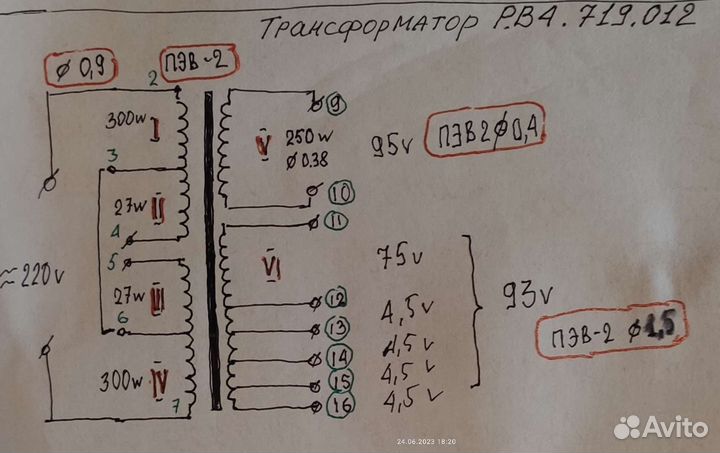 Трансформатор Р.В4.719.012
Ø 0,9
ПЭВ-2
2
300w
I
3
27w
II
4
5
27w
III
6
300w
IV
7
≈220v
V
250w
Ø0.38
9
95v
ПЭВ2Ø0,4
10
11
VI
75v
12
4,5v
13
4,5v
14
4,5v
15
4,5v
16
93v
ПЭВ-2 Ø1,5
24.06.2023 18:20
Avito